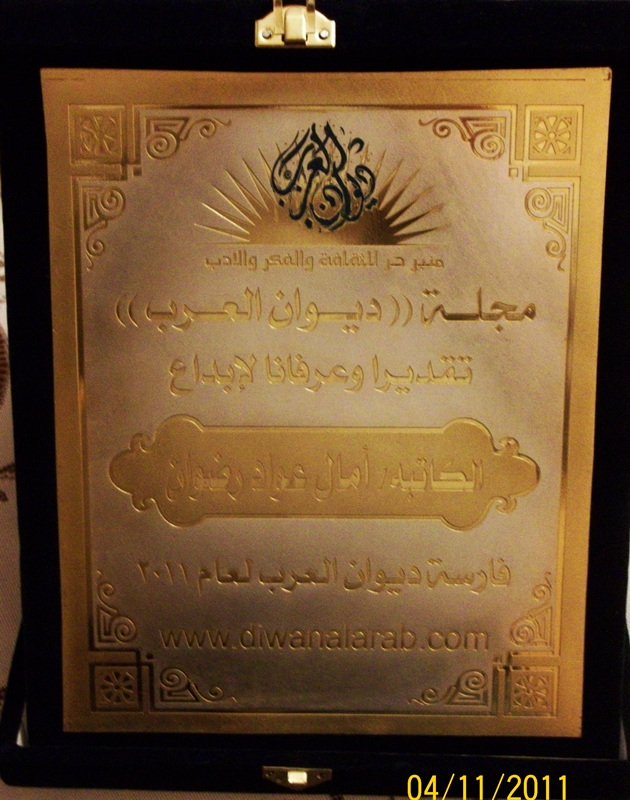 ديوان العرب
منبر حر للثقافة والفكر والادب
مجلـة ((ديـوان العـرب))
تقديرا وعرفانا لإبداع
الكاتبة/ أمال عواد رضوان
فارسة ديوان العرب لعام ٢٠١١
www.diwanalarab.com
04/11/2011